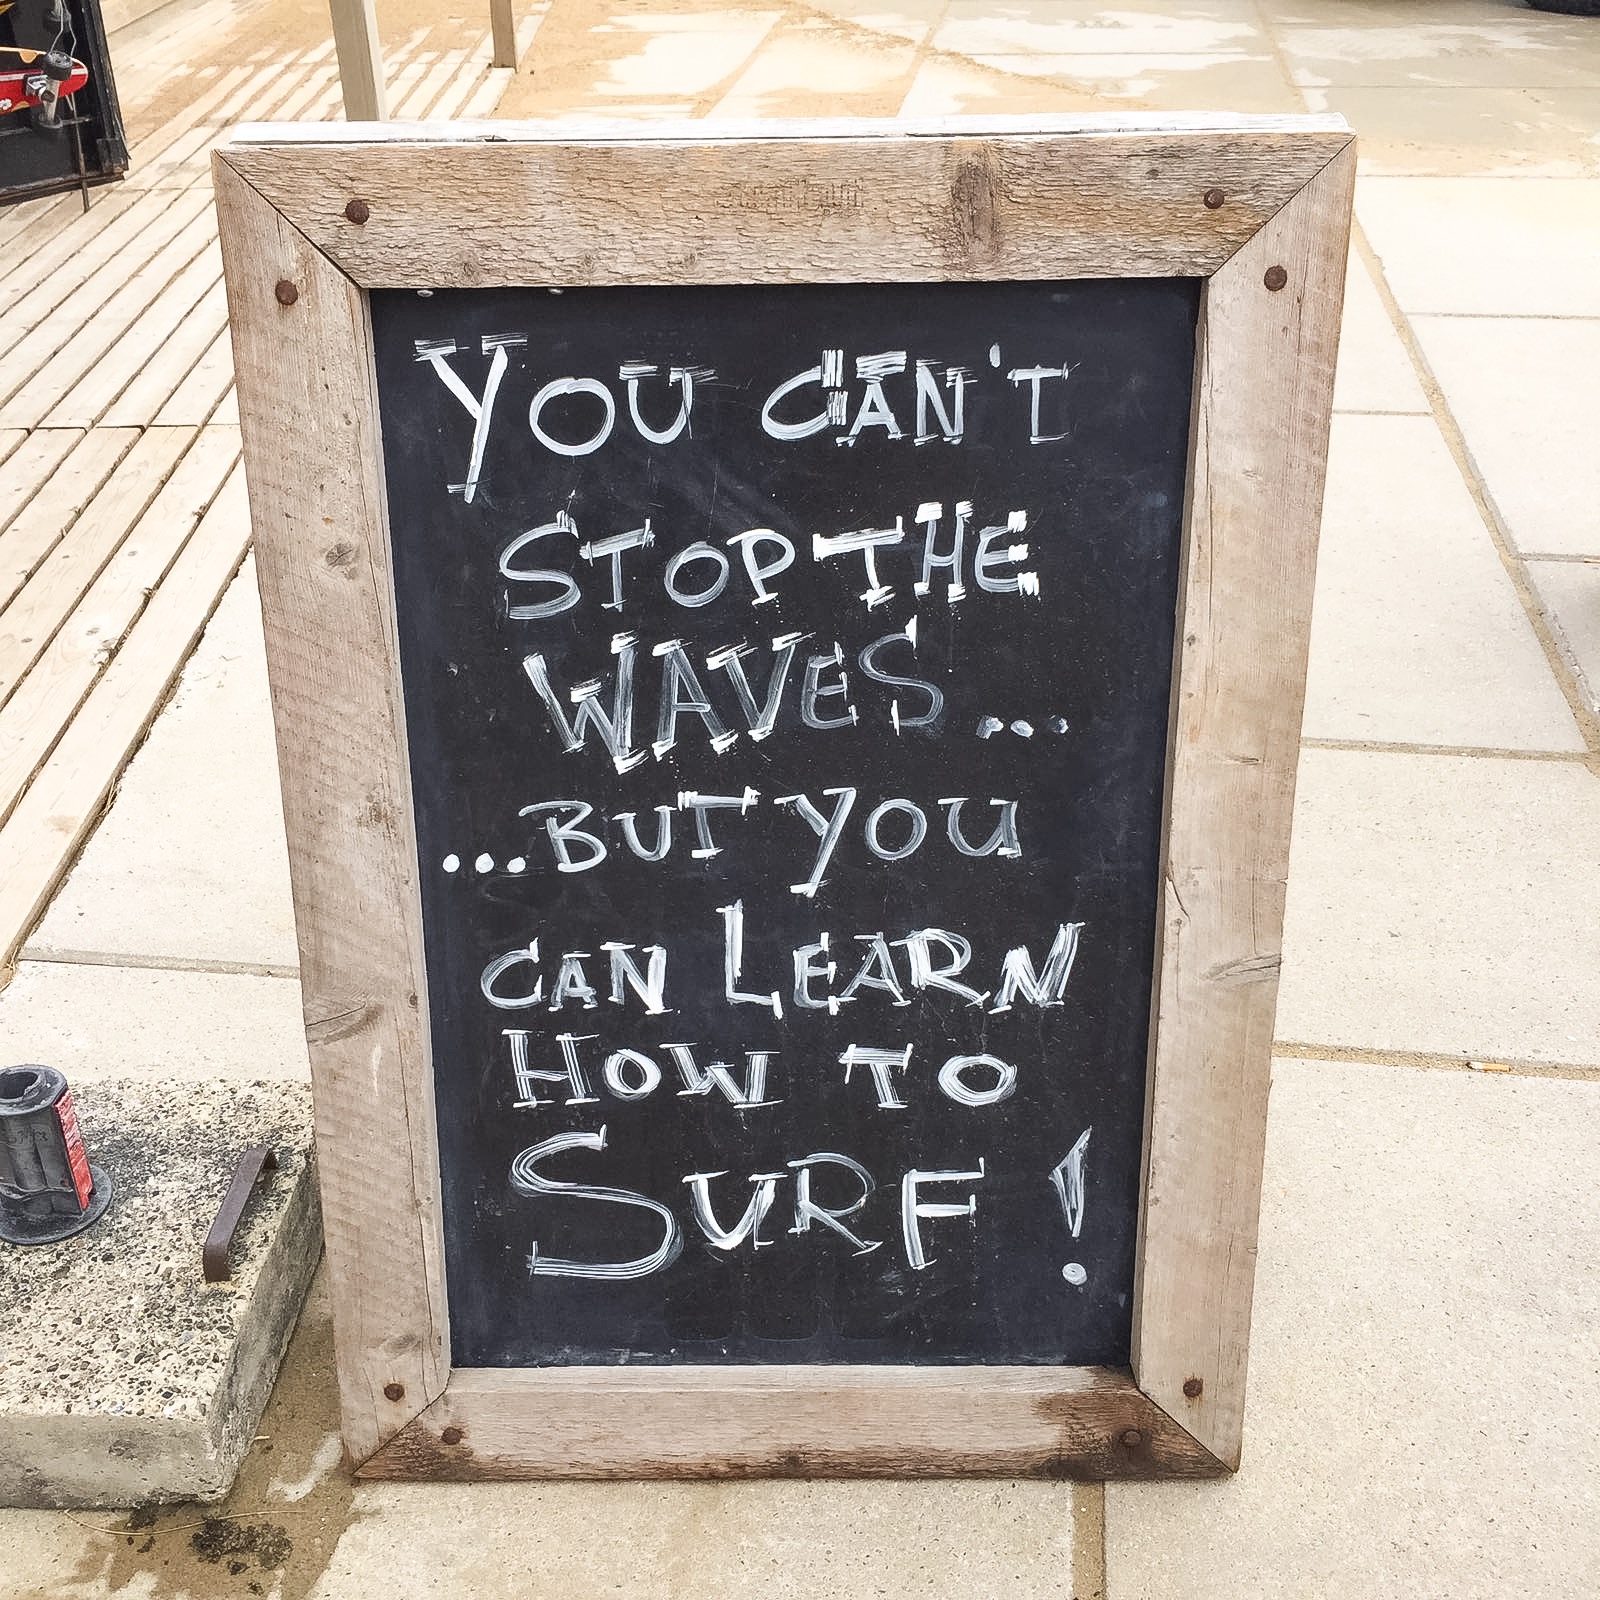 YOU CAN'T
STOP THE
WAVES...
...BUT YOU
CAN LEARN
HOW TO
SURF!